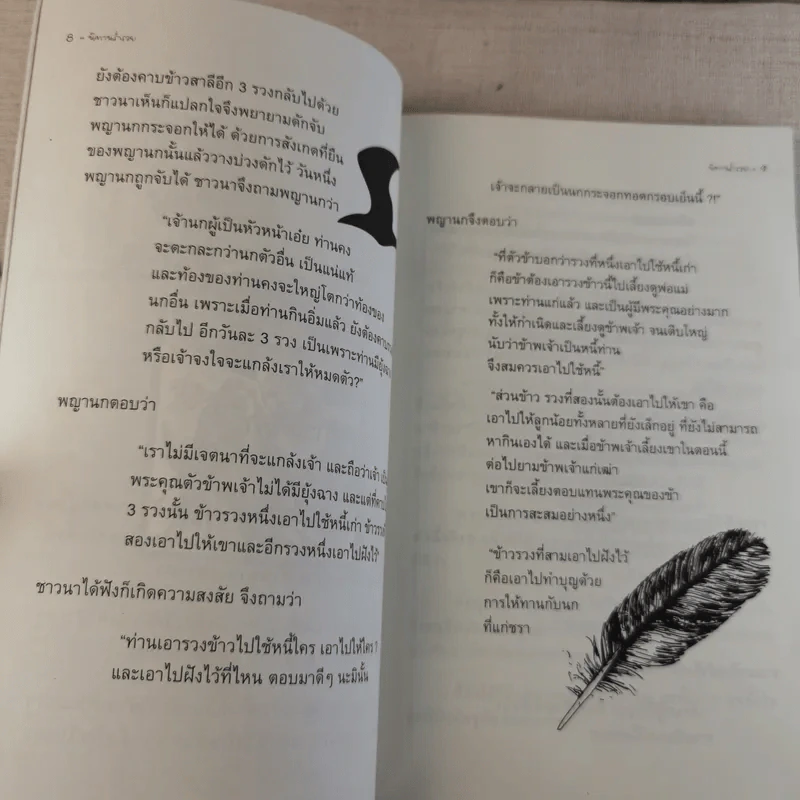 8 -
ยังต้องคาบข้าวสาลีอีก 3 รวงกลับไปด้วย
ชาวนาเห็นก็แปลกใจจึงพยายามดักจับ
พญานกกระจอกให้ได้ ด้วยการสังเกตที่ยืน
ของพญานกนั้นแล้ววางบ่วงดักไว้ วันหนึ่ง
พญานกถูกจับได้ ชาวนาจึงถามพญานกว่า
“เจ้านกผู้เป็นหัวหน้าเอ๋ย ท่านคง
จะตะกละกว่านกตัวอื่น เป็นแน่แท้
และท้องของท่านคงจะใหญ่โตกว่าท้องของ
นกอื่น เพราะเมื่อท่านกินอิ่มแล้ว ยังต้องคาบ
กลับไป อีกวันละ 3 รวง เป็นเพราะท่านมียุ้ง
หรือเจ้าจงใจจะแกล้งเราให้หมดตัว?”
พญานกตอบว่า
“เราไม่มีเจตนาที่จะแกล้งเจ้า และถือว่าเจ้า
พระคุณตัวข้าพเจ้าไม่ได้มียุ้งฉาง และแต่ที่
3 รวงนั้น ข้าวรวงหนึ่งเอาไปใช้หนี้เก่า
สองเอาไปให้เขาและอีกรวงหนึ่งเอาไปฝังไว้”
ชาวนาได้ฟังก็เกิดความสงสัย จึงถามว่า
“ท่านเอารวงข้าวไปใช้หนี้ใคร เอาไปให้ใคร ?
และเอาไปฝังไว้ที่ไหน ตอบมาดีๆ นะมินั้น
เจ้าจะกลายเป็นนกกระจอกทอดกรอบเย็นนี้ ?!”
พญานกจึงตอบว่า
“ที่ตัวข้าบอกว่ารวงที่หนึ่งเอาไปใช้หนี้เก่า
ก็คือข้าต้องเอารวงข้าวนี้ไปเลี้ยงดูพ่อแม่
เพราะท่านแก่แล้ว และเป็นผู้มีพระคุณอย่างมาก
ทั้งให้กำเนิดและเลี้ยงดูข้าพเจ้า จนเติบใหญ่
นับว่าข้าพเจ้าเป็นหนี้ท่าน
จึงสมควรเอาไปใช้หนี้”
“ส่วนข้าว รวงที่สองนั้นต้องเอาไปให้เขา คือ
เอาไปให้ลูกน้อยทั้งหลายที่ยังเล็กอยู่ ที่ยังไม่สามารถ
หากินเองได้ และเมื่อข้าพเจ้าเลี้ยงเขาในตอนนี้
ต่อไปยามข้าพเจ้าแก่เฒ่า
เขาก็จะเลี้ยงตอบแทนพระคุณของข้า
เป็นการสะสมอย่างหนึ่ง”
“ข้าวรวงที่สามเอาไปฝังไว้
ก็คือเอาไปทำบุญด้วย
การให้ทานกับนก
ที่แก่ชรา